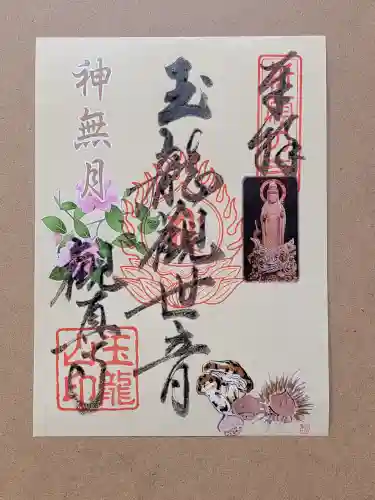 奉拝
玉龍観世音
神無月
観真寺
玉龍
之印